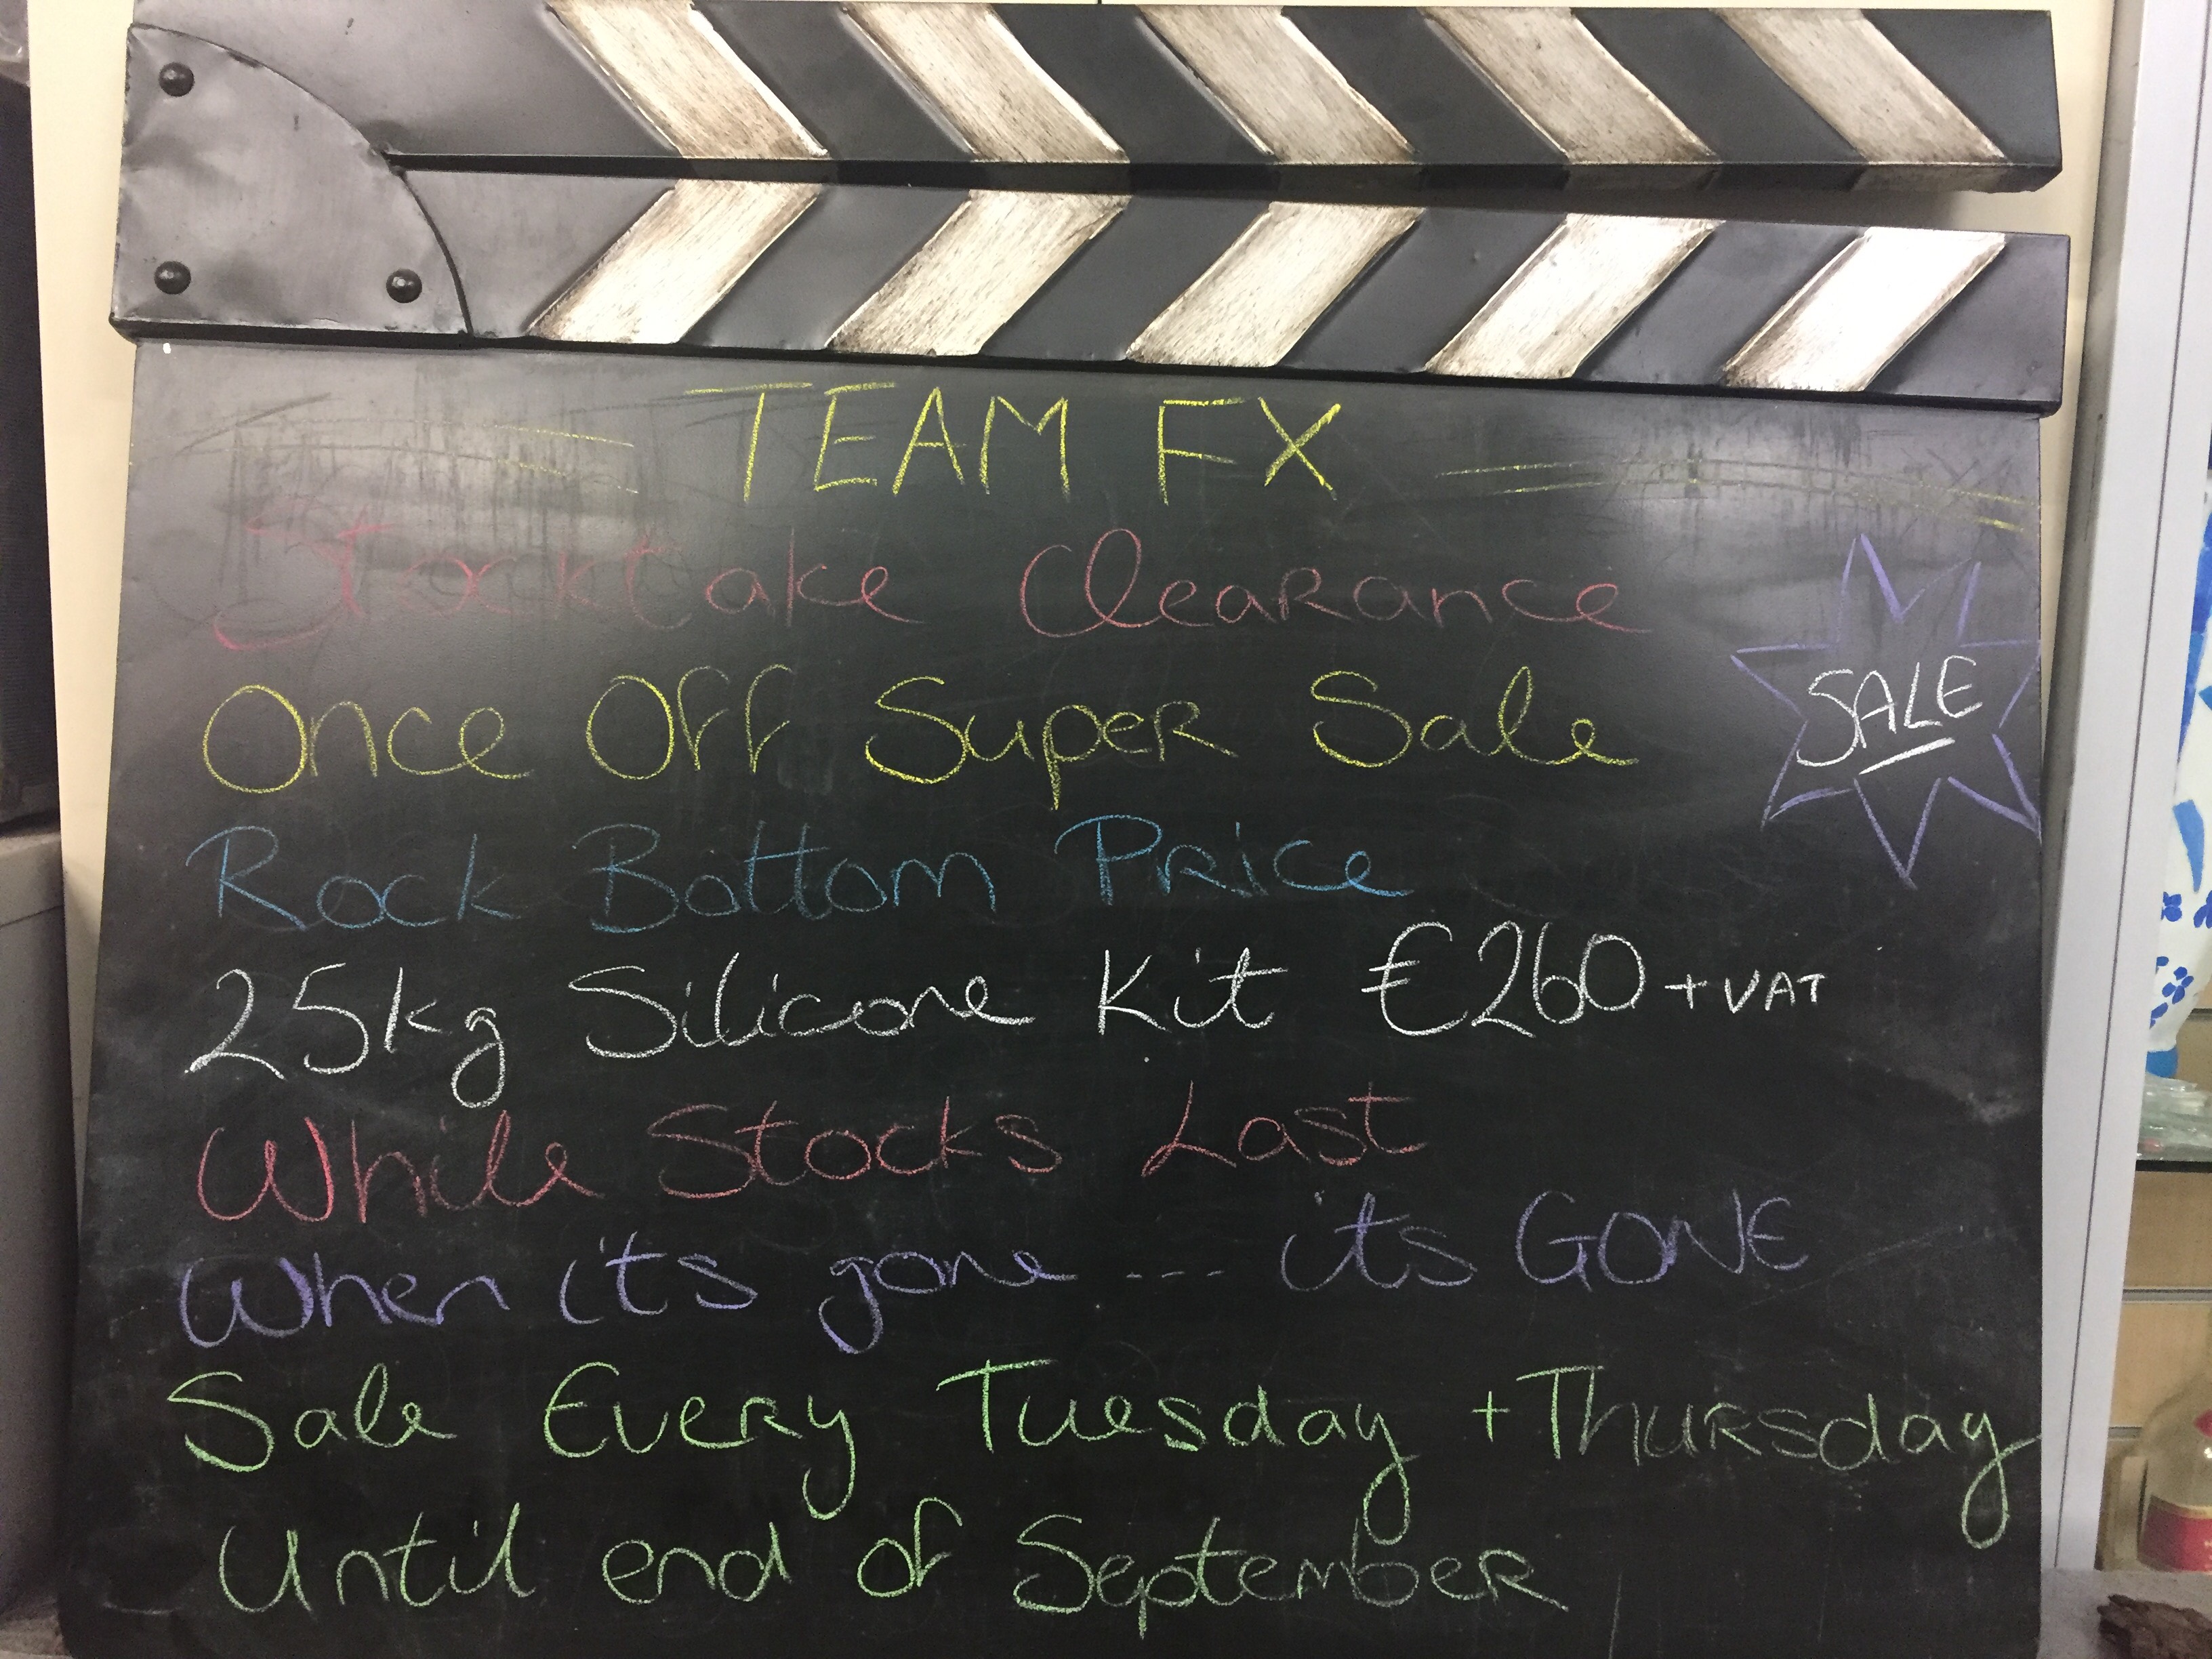 TEAM FX
Stocktake Clearance
Once Off Super Sale
SALE
Rock Bottom Price
25kg Silicone Kit €260 + VAT
While Stocks Last
When it's gone --- its GONE
Sale Every Tuesday + Thursday
Until end of September